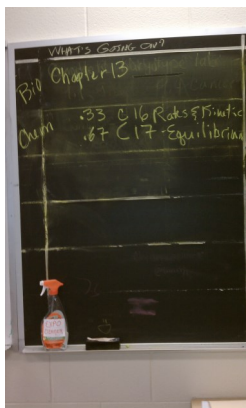 WHAT'S GOING ON?
Bio Chapter 13
Chem .33 C 16 Rates & Kinetic
.67 C 17 - Equilibrium